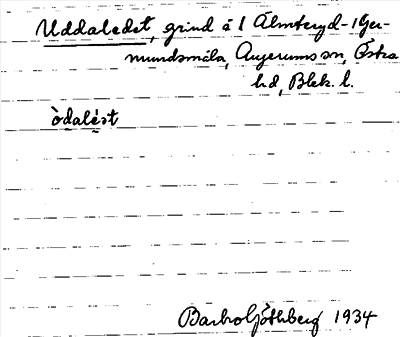 Uddaledet, grind å 1 Älmteryd - 1 Ger-
mundsmåla, Augerums sn, Östra
hd, Blek. l.
òdalést
Barbro Göthberg 1934